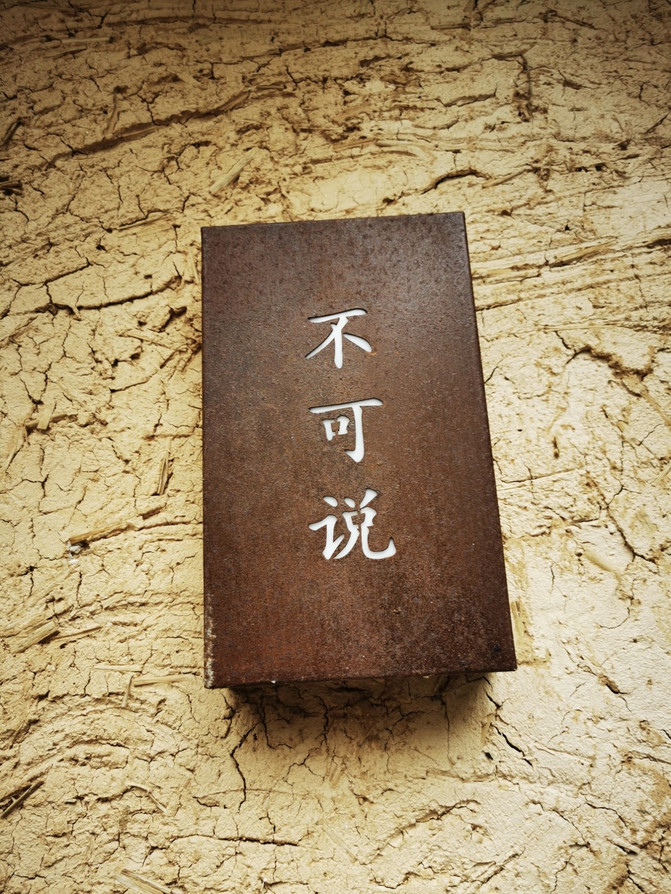 不可说